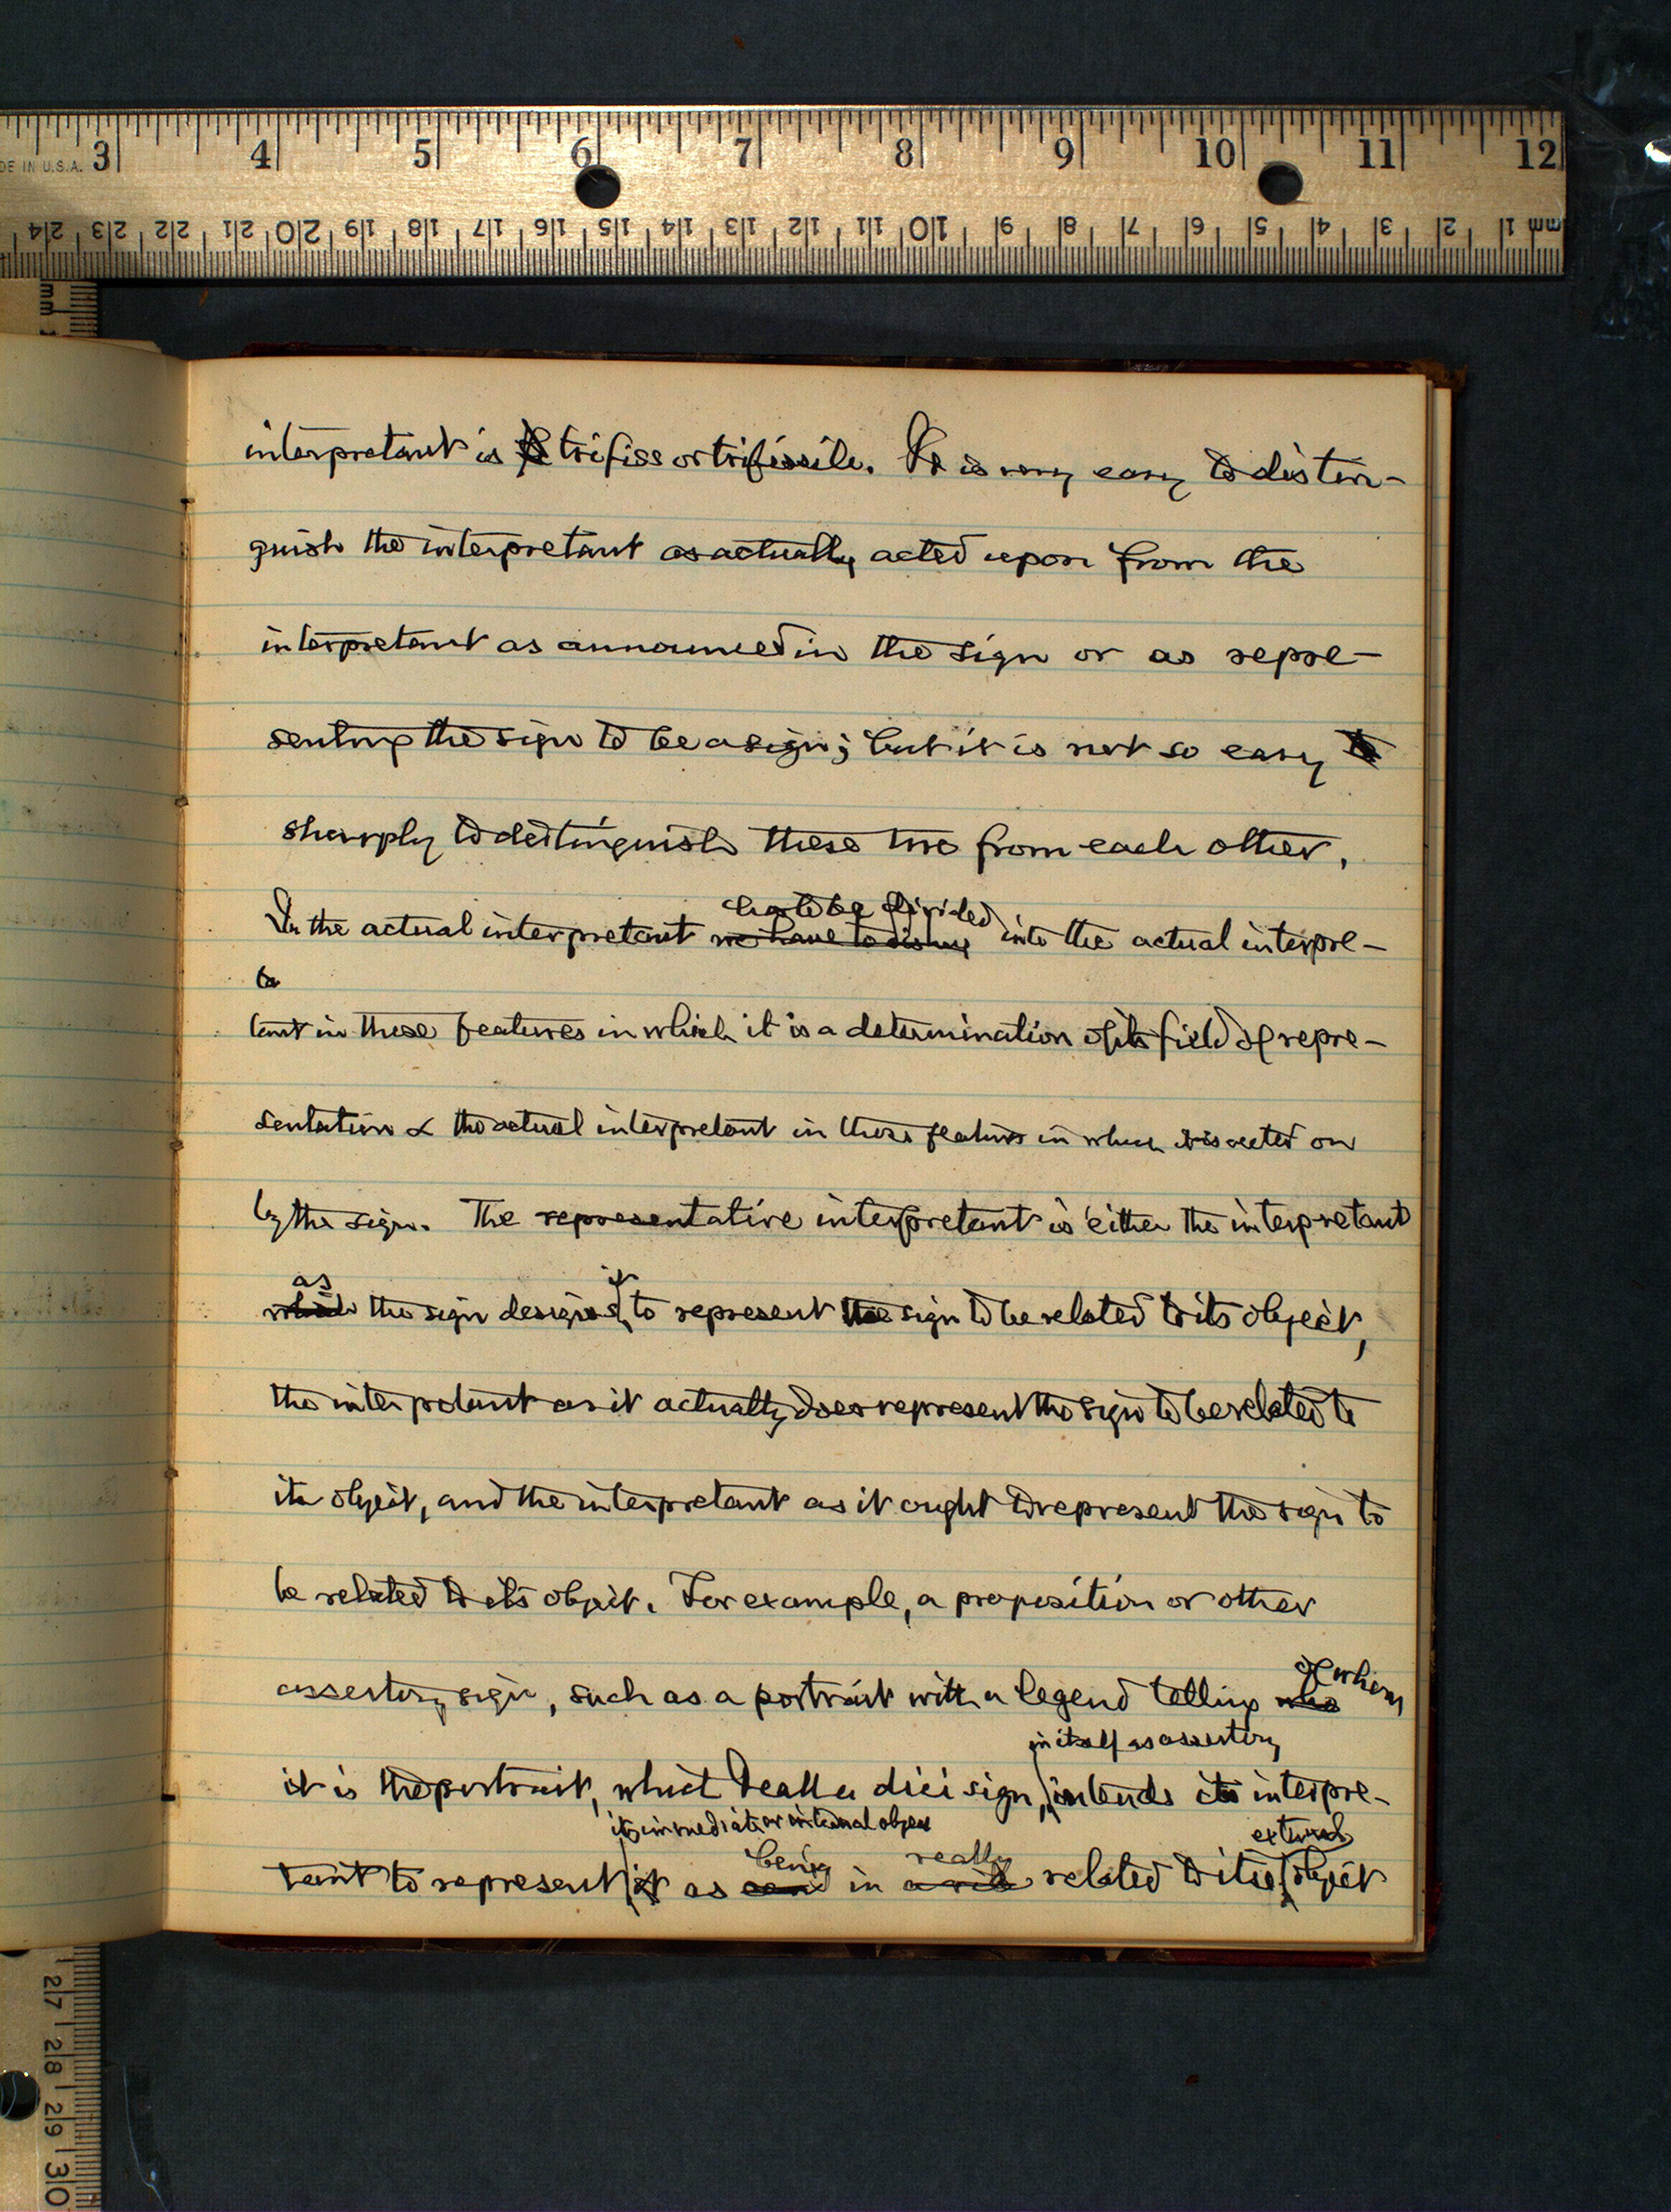 DE IN U.S.A. 3 4 5 6 7 8 9 10 11 12
24 23 22 21 20 19 18 17 16 15 14 13 12 11 10 9 8 7 6 5 4 3 2 1 mm
mm
interpretant is trifiss or trifissile. It is very easy to distin-
guish the interpretant as actually acted upon from the
interpretant as announced in the sign or as repre-
senting the sign to be a sign; but it is not so easy to
sharply to distinguish these two from each other.
has to be divided
In the actual interpretant we have to disting into the actual interpre-
ta
tant in those features in which it is a determination of its field of repre-
sentation & the actual interpretant in those features in which it is acted on
by the sign. The representative interpretant is either the interpretant
as it
which the sign designs to represent the sign to be related to its object,
the interpretant as it actually does represent the sign to be related to
its object, and the interpretant as it ought to represent the sign to
be related to its object. For example, a proposition or other
of whom
asserting sign, such as a portrait with a legend telling who
in itself as asserting
it is the portrait, which I call a dicisign, intends its interpre-
its immediate or internal object external
being really
tant to represent it as in related to its object
27 28 29 30